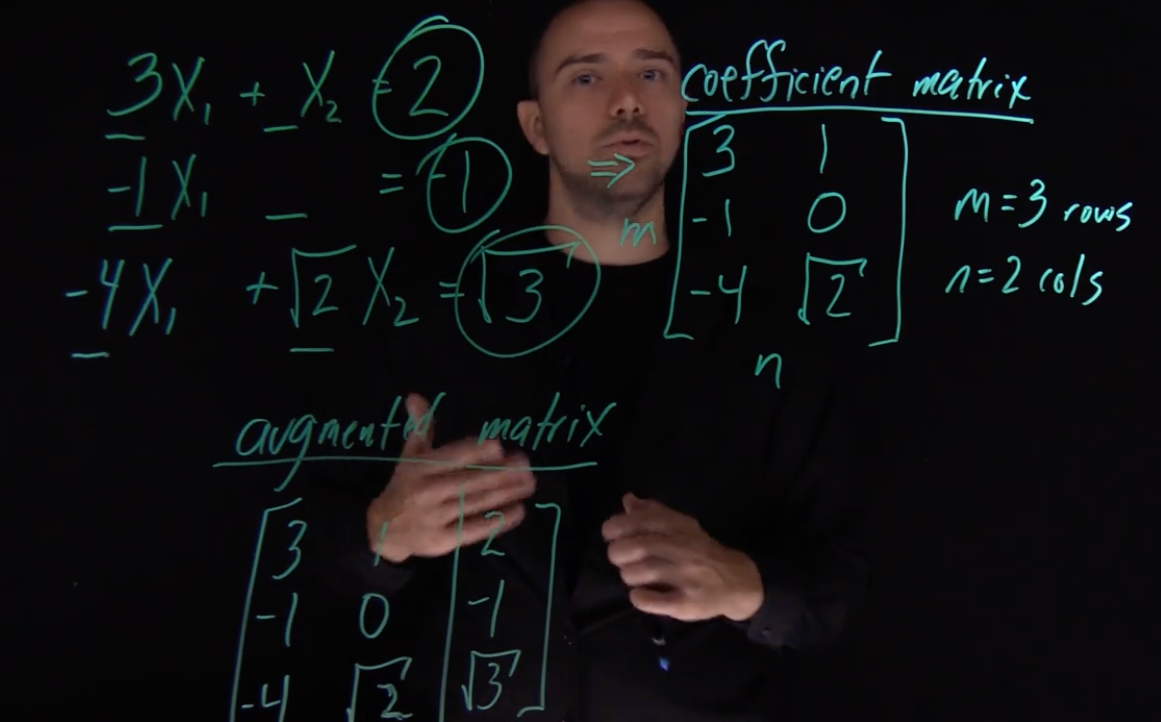 3X₁ + X₂ = 2
-1X₁ _ = -1
-4X₁ + √2 X₂ = √3
coefficient matrix
⇒
3 1
-1 0
-4 √2
m
n
m=3 rows
n=2 cols
augmented matrix
3 1 | 2
-1 0 | -1
-4 √2 | √3